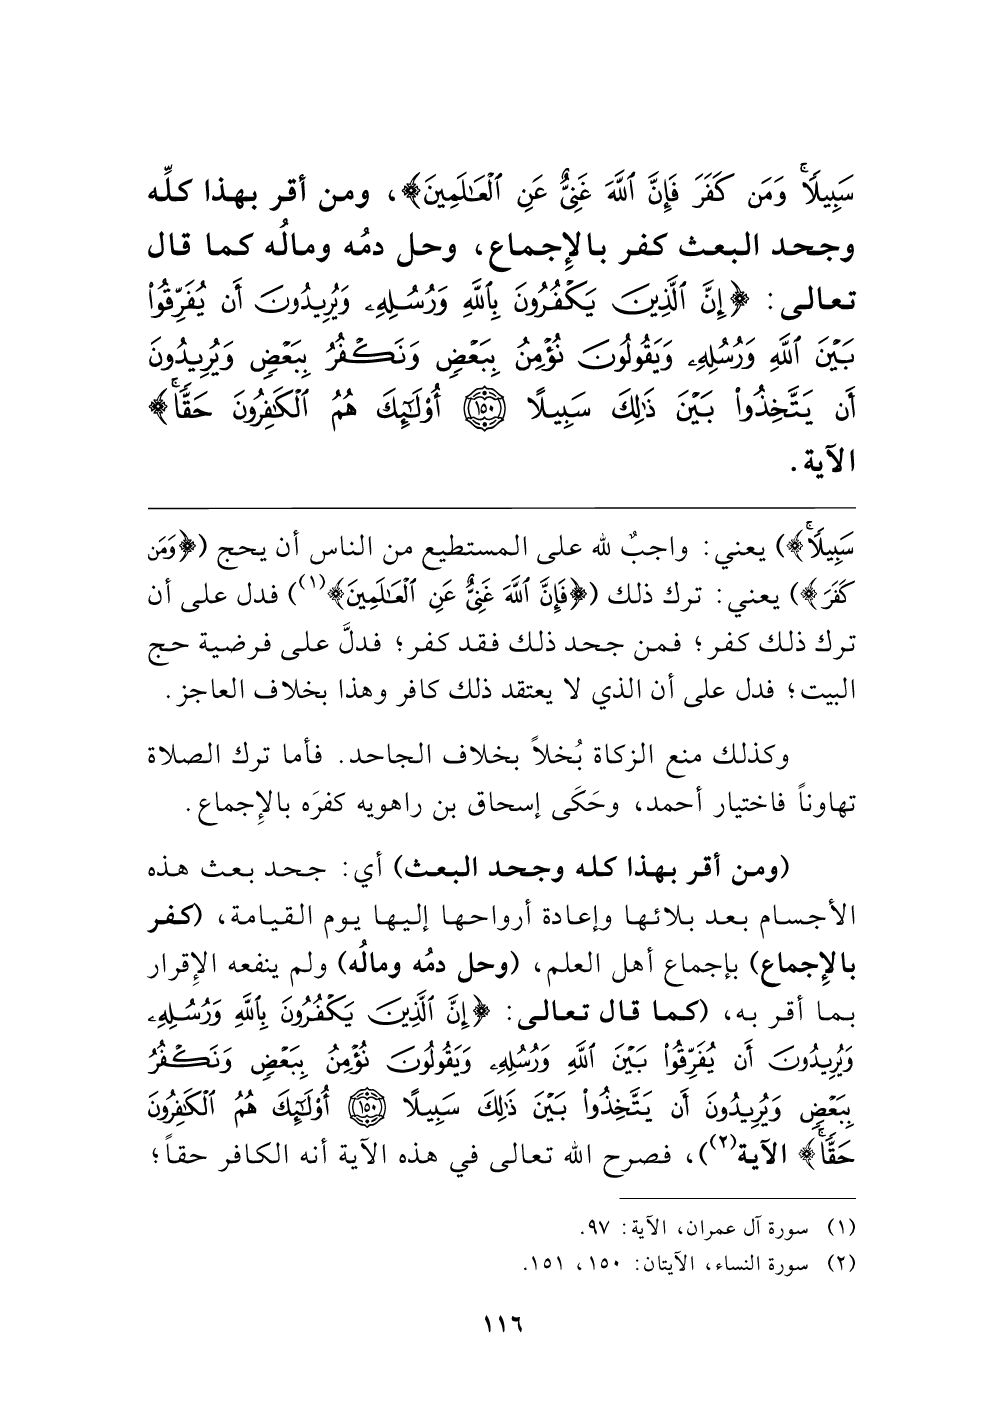 سَبِيلًاۚ وَمَن كَفَرَ فَإِنَّ ٱللَّهَ غَنِيٌّ عَنِ ٱلْعَـٰلَمِينَ﴾، ومن أقر بهذا كلِّه
وجحد البعث كفر بالإِجماع، وحل دمُه ومالُه كما قال
تعالى: ﴿إِنَّ ٱلَّذِينَ يَكْفُرُونَ بِٱللَّهِ وَرُسُلِهِۦ وَيُرِيدُونَ أَن يُفَرِّقُوا۟
بَيْنَ ٱللَّهِ وَرُسُلِهِۦ وَيَقُولُونَ نُؤْمِنُ بِبَعْضٍ وَنَكْفُرُ بِبَعْضٍ وَيُرِيدُونَ
أَن يَتَّخِذُوا۟ بَيْنَ ذَٰلِكَ سَبِيلًا ١٥٠ أُو۟لَـٰٓئِكَ هُمُ ٱلْكَـٰفِرُونَ حَقًّاۚ﴾
الآية.
سَبِيلًاۚ﴾) يعني: واجبٌ لله على المستطيع من الناس أن يحج (﴿وَمَن
كَفَرَ﴾) يعني: ترك ذلك (﴿فَإِنَّ ٱللَّهَ غَنِيٌّ عَنِ ٱلْعَـٰلَمِينَ﴾(١)) فدل على أن
ترك ذلك كفر؛ فمن جحد ذلك فقد كفر؛ فدلَّ على فرضية حج
البيت؛ فدل على أن الذي لا يعتقد ذلك كافر وهذا بخلاف العاجز.
وكذلك منع الزكاة بُخلاً بخلاف الجاحد. فأما ترك الصلاة
تهاوناً فاختيار أحمد، وحَكَى إسحاق بن راهويه كفرَه بالإِجماع.
(ومن أقر بهذا كله وجحد البعث) أي: جحد بعث هذه
الأجسام بعد بلائها وإعادة أرواحها إليها يوم القيامة، (كفر
بالإِجماع) بإجماع أهل العلم، (وحل دمُه ومالُه) ولم ينفعه الإِقرار
بما أقر به، (كما قال تعالى: ﴿إِنَّ ٱلَّذِينَ يَكْفُرُونَ بِٱللَّهِ وَرُسُلِهِۦ
وَيُرِيدُونَ أَن يُفَرِّقُوا۟ بَيْنَ ٱللَّهِ وَرُسُلِهِۦ وَيَقُولُونَ نُؤْمِنُ بِبَعْضٍ وَنَكْفُرُ
بِبَعْضٍ وَيُرِيدُونَ أَن يَتَّخِذُوا۟ بَيْنَ ذَٰلِكَ سَبِيلًا ١٥٠ أُو۟لَـٰٓئِكَ هُمُ ٱلْكَـٰفِرُونَ
حَقًّاۚ﴾ الآية(٢))، فصرح الله تعالى في هذه الآية أنه الكافر حقاً؛
(١) سورة آل عمران، الآية: ٩٧.
(٢) سورة النساء، الآيتان: ١٥٠، ١٥١.
١١٦